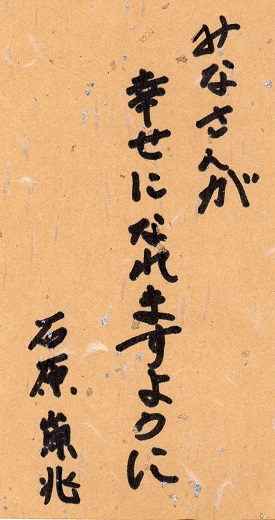 みなさんが
幸せになれますように
石原 崇兆